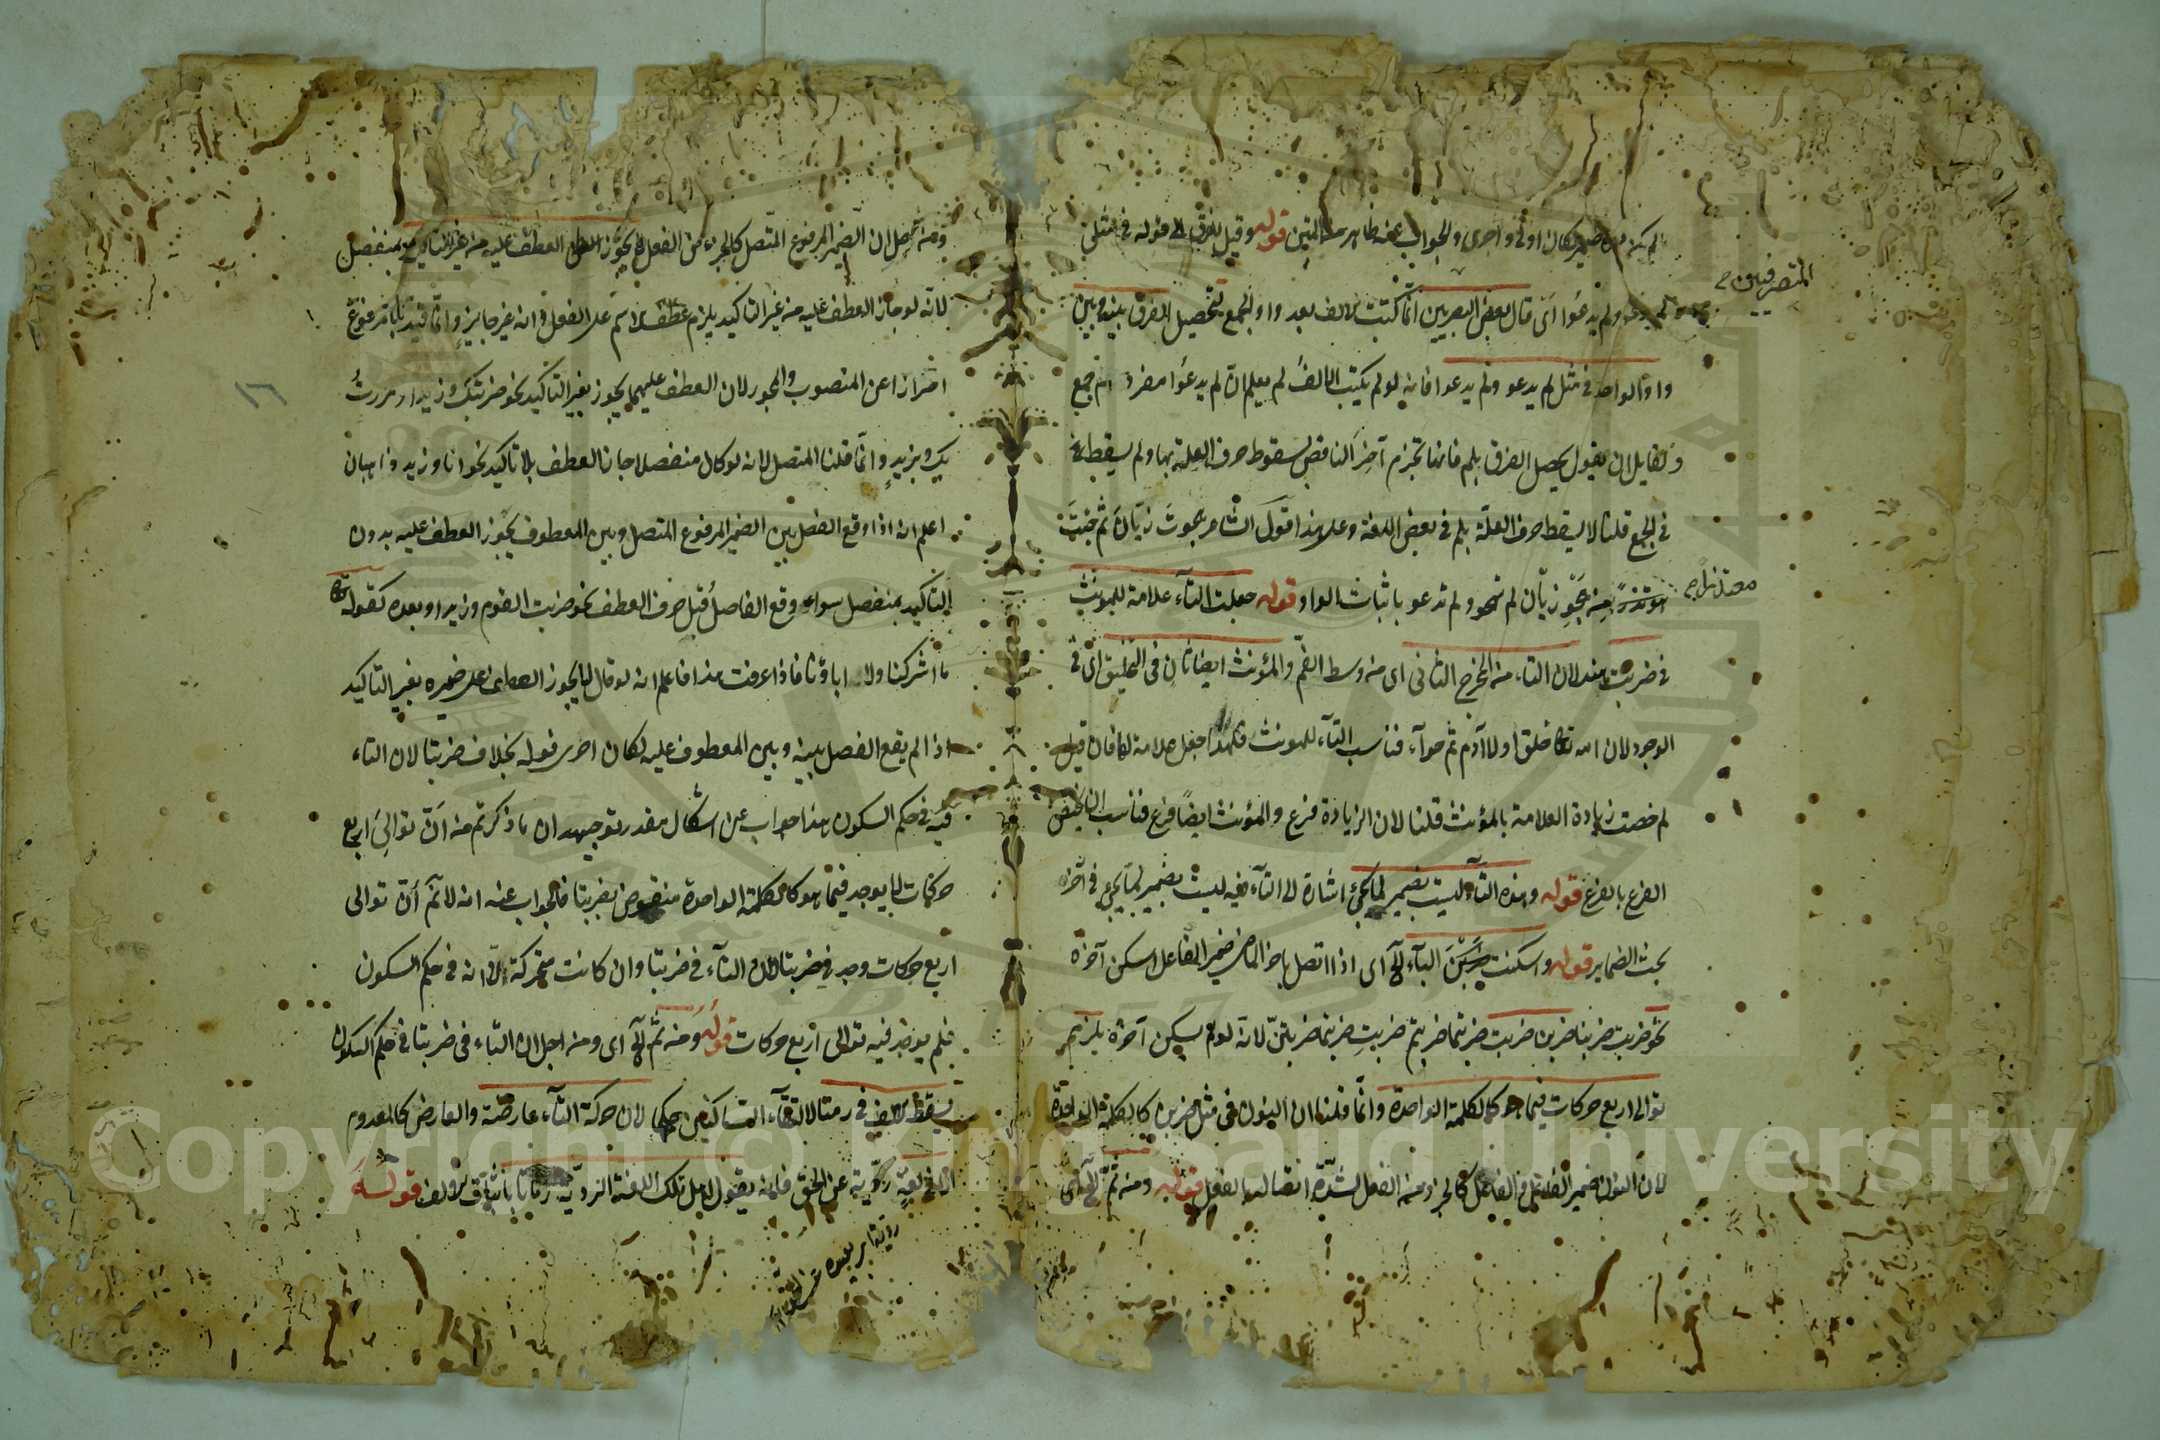 لم يكن ضمير كان اولى واحرى والجواب عنه ظاهر من المتين قوله وقيل للفرق الى قوله في مثل
لم يدعو ولم يدعوا اى قال بعض البصريين انما كتبت الالف بعد واو الجمع لتحصيل الفرق بينه وبين
المتصرفيين
واو الواحد في مثل لم يدعو ولم يدعوا فانه لو لم يكتب الالف لم يعلم ان لم يدعوا مفرد ام جمع
ولقايل ان يقول يحصل الفرق بلم فانها تجزم آخر الناقص بسقوط حرف العلة بها ولم يسقط
في الجمع قلنا لا يسقط حرف العلة بلم في بعض اللغة وعلى هذا قول الشاعر هجوت زبّان ثم جئت
معتذرا
من هجو زبّان لم تهجو ولم تدعو باثبات الواو قوله جعلت التآء علامة للمونث
في ضربت هند لان التاء من المخرج الثاني اى من وسط الفم والمؤنث ايضا ثان في التخليق اى في
الوجود لان الله تعالى خلق اولا آدم ثم حوآء فناسب التآء للمونث فلهذا جعل علامة لها فان قيل
لم خصت زيادة العلامة بالمؤنث قلنا لان الزيادة فرع والمؤنث ايضاً فرع فناسب ان يخص
الفرع بالفرع قوله وهذه التآء ليست بضمير لما يجئ اشارة الى التآء فيه ليست بضمير لما يجئ في آخر
بحث الضماير قوله واسكنت البآء الخ اى اذا اتصل باخر الماضى ضمير الفاعل اسكن آخره
نحو ضربت ضربنا ضربن ضربت ضربتما ضربتم ضربتِ ضربتما ضربتنّ لانه لو لم يسكن آخره يلزم
توالى اربع حركات فيما هو كالكلمة الواحدة وانّما قلنا ان النون في مثل ضربن كالكلمة الواحدة
لان النون ضمير الفاعل والفاعل كالجزء من الفعل لشدّة اتصاله بالفعل قوله ومن ثمّ الخ اى
ومن اجل ان الضمير المرفوع المتصل كالجزء من الفعل لا يجوز العطف عليه من غير التاكيد بمنفصل
لانّه لو جاز العطف عليه من غير التاكيد يلزم عطف الاسم على الفعل وانه غير جايز وانّما قيد بالمرفوع
احترازا عن المنصوب والمجرور لان العطف عليهما يجوز بغير التاكيد نحو ضربتك وزيدا ومررتُ
بك وبزيدٍ وانّما قلنا المتصل لانه لو كان منفصلا جاز العطف بلا تاكيد نحو انا وزيد ذاهبان
اعلم انه اذا وقع الفصل بين الضمير المرفوع المتصل وبين المعطوف يجوز العطف عليه بدون
التاكيد بمنفصل سواء وقع الفاصل قبل حرف العطف نحو ضربت القوم وزيد او بعده كقوله تعالى
ما اشركنا ولا اباؤنا فاذا عرفت هذا فاعلم انه لو قال لا يجوز العطف على ضميره بغير التاكيد
اذا لم يقع الفصل بينه وبين المعطوف عليه لكان احرى قوله بخلاف ضربتا لان التاء
فيه في حكم السكون هذا جواب عن اشكال مقدر توجيهه ان ما ذكرتم من انّ توالى اربع
حركات لا يوجد فيما هو كالكلمة الواحدة منقوض بضربتا فالجواب عنه انه لا نمّ انّ توالى
اربع حركات وجد في ضربتا لان التآء في ضربتا وان كانت متحركة الّا انه في حكم السكون
فلم يوجد فيه توالى اربع حركات قوله ومن ثمّ الخ اى ومن اجل ان التاء في ضربتا في حكم السكون
يسقط الالف في رمتا لالتقآء الساكنين حكما لان حركة التآء عارضة والعارض كالمعدوم
الا في لغةٍ رديّة عن الحق فانه يقول اهل تلك اللغة الرديّة رماتا باثبات الالف قوله